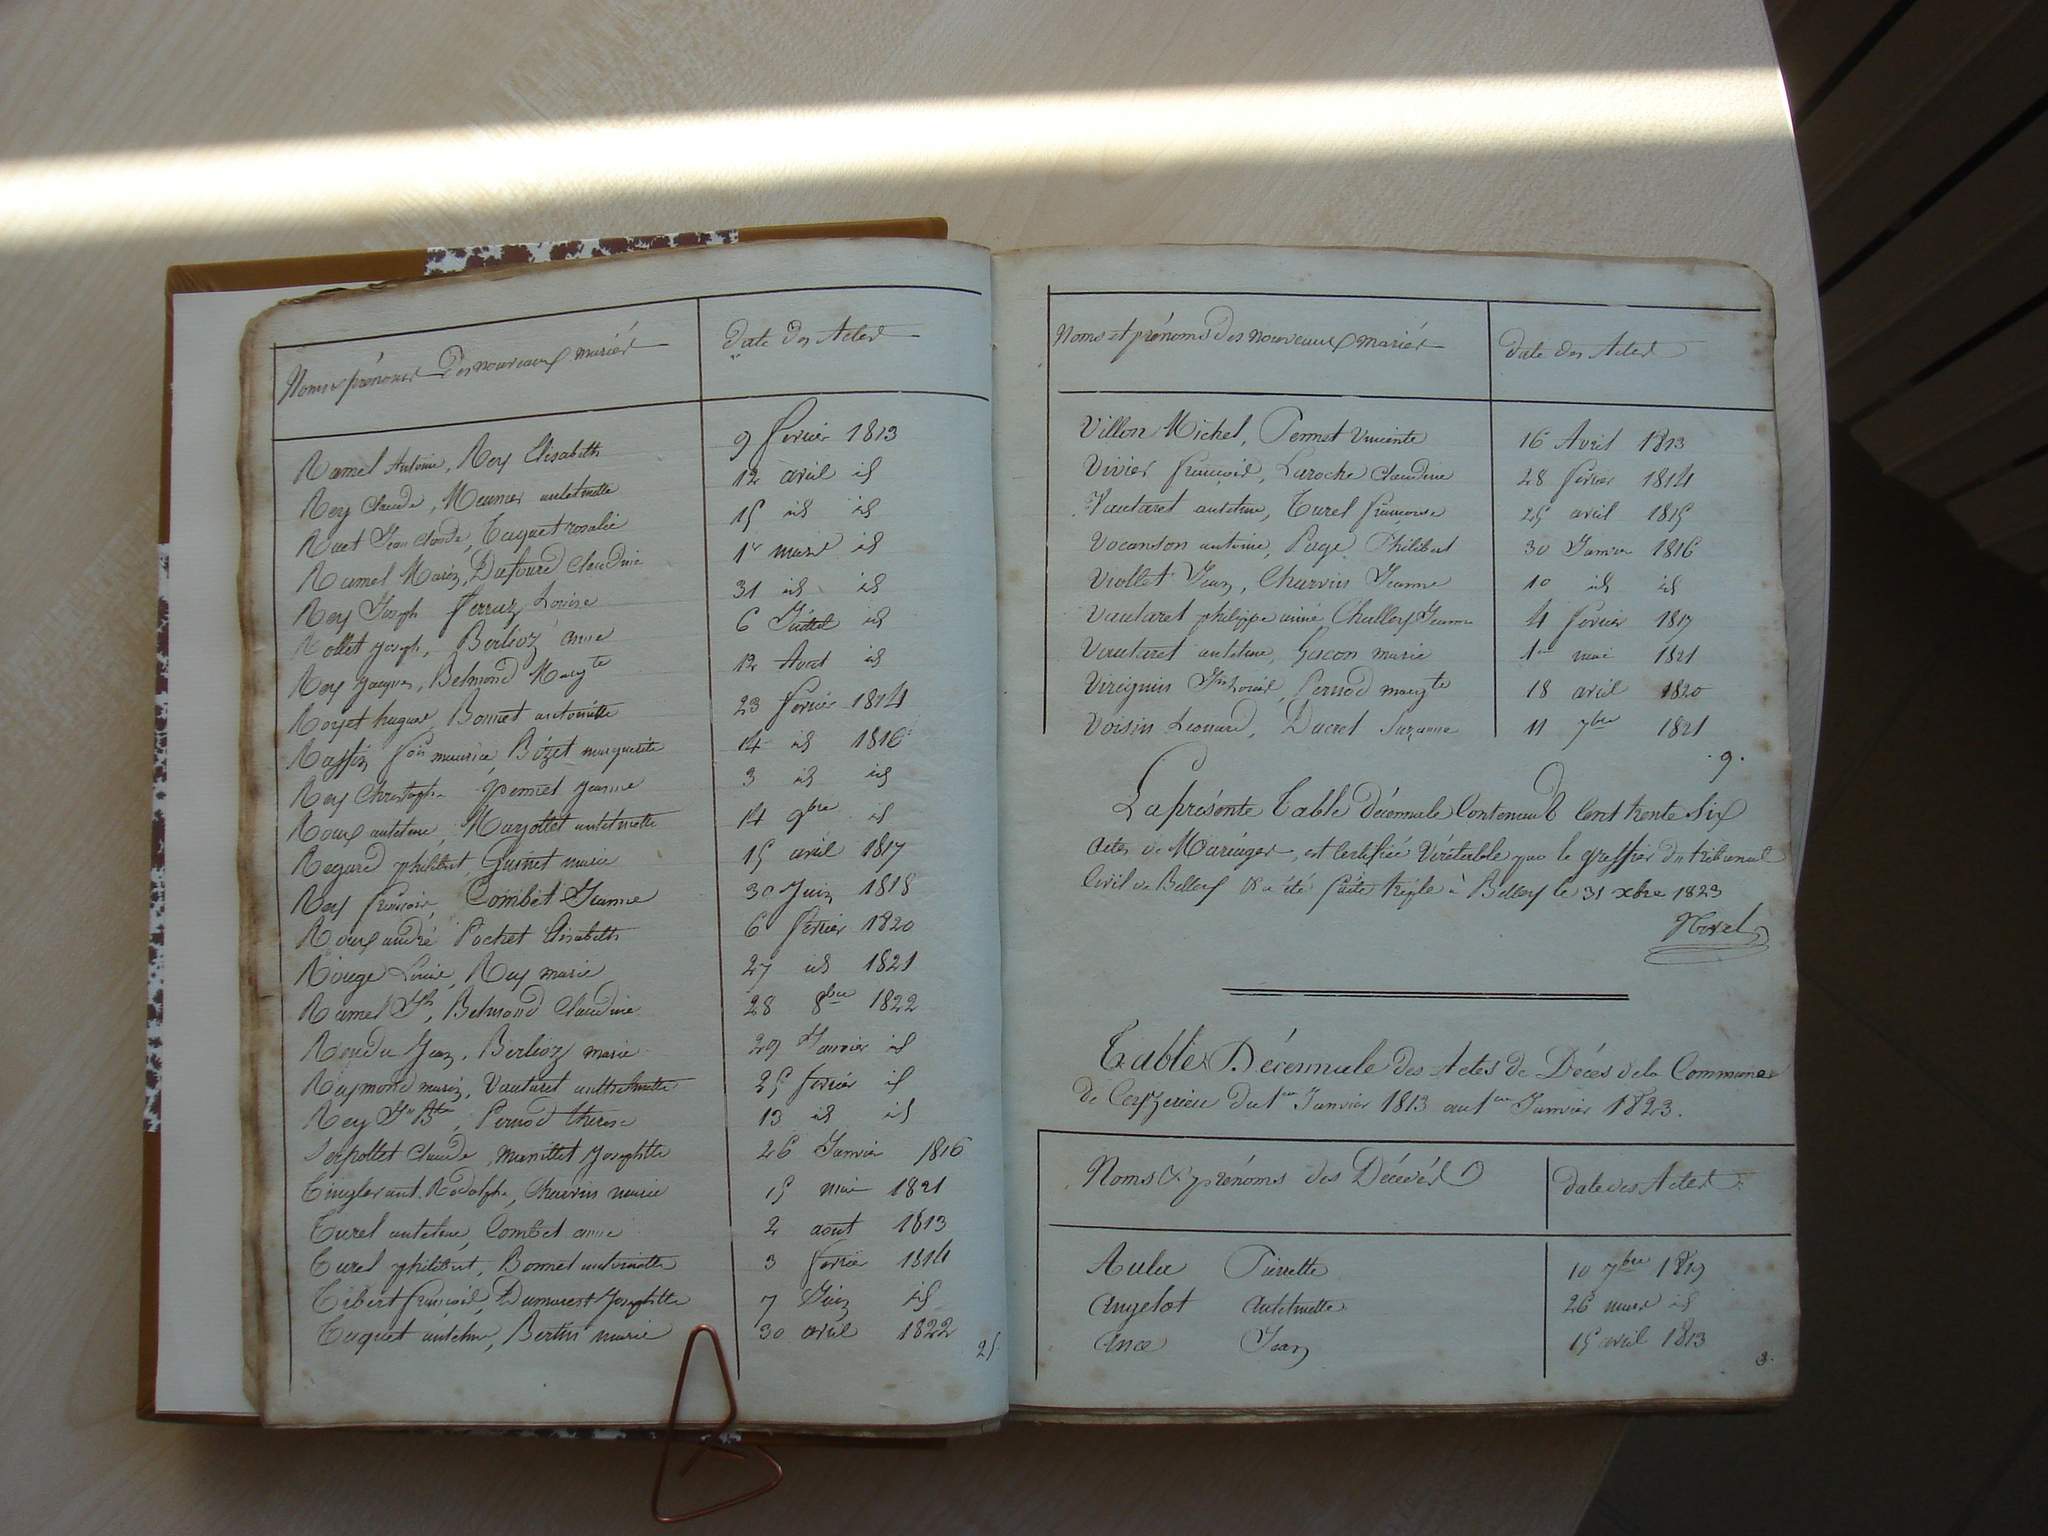 Noms et prénoms Des nouveaux mariés
date des Actes
Ramel Antoine, Rey Elisabeth 9 fevrier 1813
Rey Claude, Meunier antelmette 12 avril id
Ruet Jean Claude, Tuquet rosalie 15 id id
Ramel Marin, Dufour Claudine 1er mars id
Rey Joseph Perruz Louise 31 id id
Rollet Joseph, Berlioz anne 6 Juillet id
Rey Jacques, Belmond Margte 12 Aout id
Royet hugues, Bonnet antoinette 23 fevrier 1814
Raffin fois maurice, Bozet marguerite 14 id 1816
Rey Christophe Jeanne 3 id id
Roux antelme, Marjollet antelmette 14 9bre id
Regard philibert, Guinet marie 15 avril 1817
Rey francois, Combet Jeanne 30 Juin 1818
Roux andré Pochet Elisabeth 6 fevrier 1820
Rouge Louis, Rey marie 27 id 1821
Ramel Jh, Belmond Claudine 28 8bre 1822
Rendu Jean, Berlioz marie 29 Janvier id
Raymond marin, Vautaret anthelmette 25 fevrier id
Rey Jn Bte, Pernod therese 13 id id
Serpollet Claude, manillet Josephtte 26 Janvier 1816
Tinglerant Rodolphe, Charvin marie 15 mai 1821
Turel antelme, Combet anne 2 aout 1813
Turel philibert, Bonnet antoinette 3 fevrier 1814
Tibert francois, Dumarest Josephtte 7 Juin id
Tuquet antelme, Bertin marie 30 avril 1822
25.
Noms et prénoms Des nouveaux mariés
date des Actes
Villon Michel, Pernet Vincente 16 Avril 1813
Vivier francois, Laroche Claudine 28 fevrier 1814
Vautaret antelme, Turel francoise 25 avril 1815
Vocanson antoine, Page Philibert 30 Janvier 1816
Viollet Jean, Charvin Jeanne 10 id id
Vautaret philippe ainé, Challey Jeanne 4 fevrier 1817
Vautaret antelme, Gacon marie 1er mai 1821
Vireguin Jn Louis, Pernod margte 18 avril 1820
Voisin Leonard, Ducret Suzanne 11 7bre 1821
.9.
La présente Table décennale Contenant Cent trente Six
actes de Mariages, est Certifiée Véritable par le greffier du tribunal
Civil de Belley & a été faite triple à Belley le 31 xbre 1823
Morel
Table Décennale des Actes de Décès de la Commune
de Ceyzerieu du 1er Janvier 1813 au 1er Janvier 1823.
Noms & prénoms des Décédés
date des Actes
Aulu Pierrette 10 7bre 1819
Angelot Antelmette 26 mars id
Ance Jean 15 avril 1813
3.